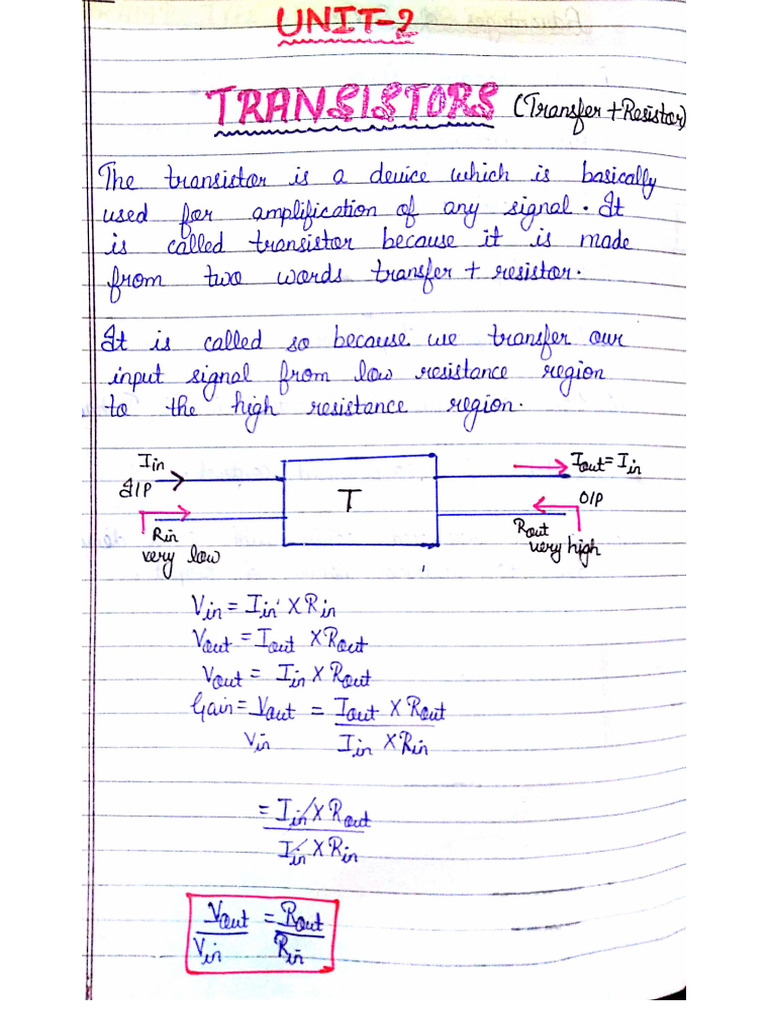 UNIT-2
TRANSISTORS (Transfer + Resistor)
The transistor is a device which is basically
used for amplification of any signal. It
is called transistor because it is made
from two words transfer + resistor.
It is called so because we transfer our
input signal from low resistance region
to the high resistance region.
Iin
Iout = Iin
I/P
T
O/P
Rin
very low
Rout
very high
Vin = Iin × Rin
Vout = Iout × Rout
Vout = Iin × Rout
Gain = Vout = Iout × Rout
Vin Iin × Rin
= Iin × Rout
Iin × Rin
Vout = Rout
Vin Rin